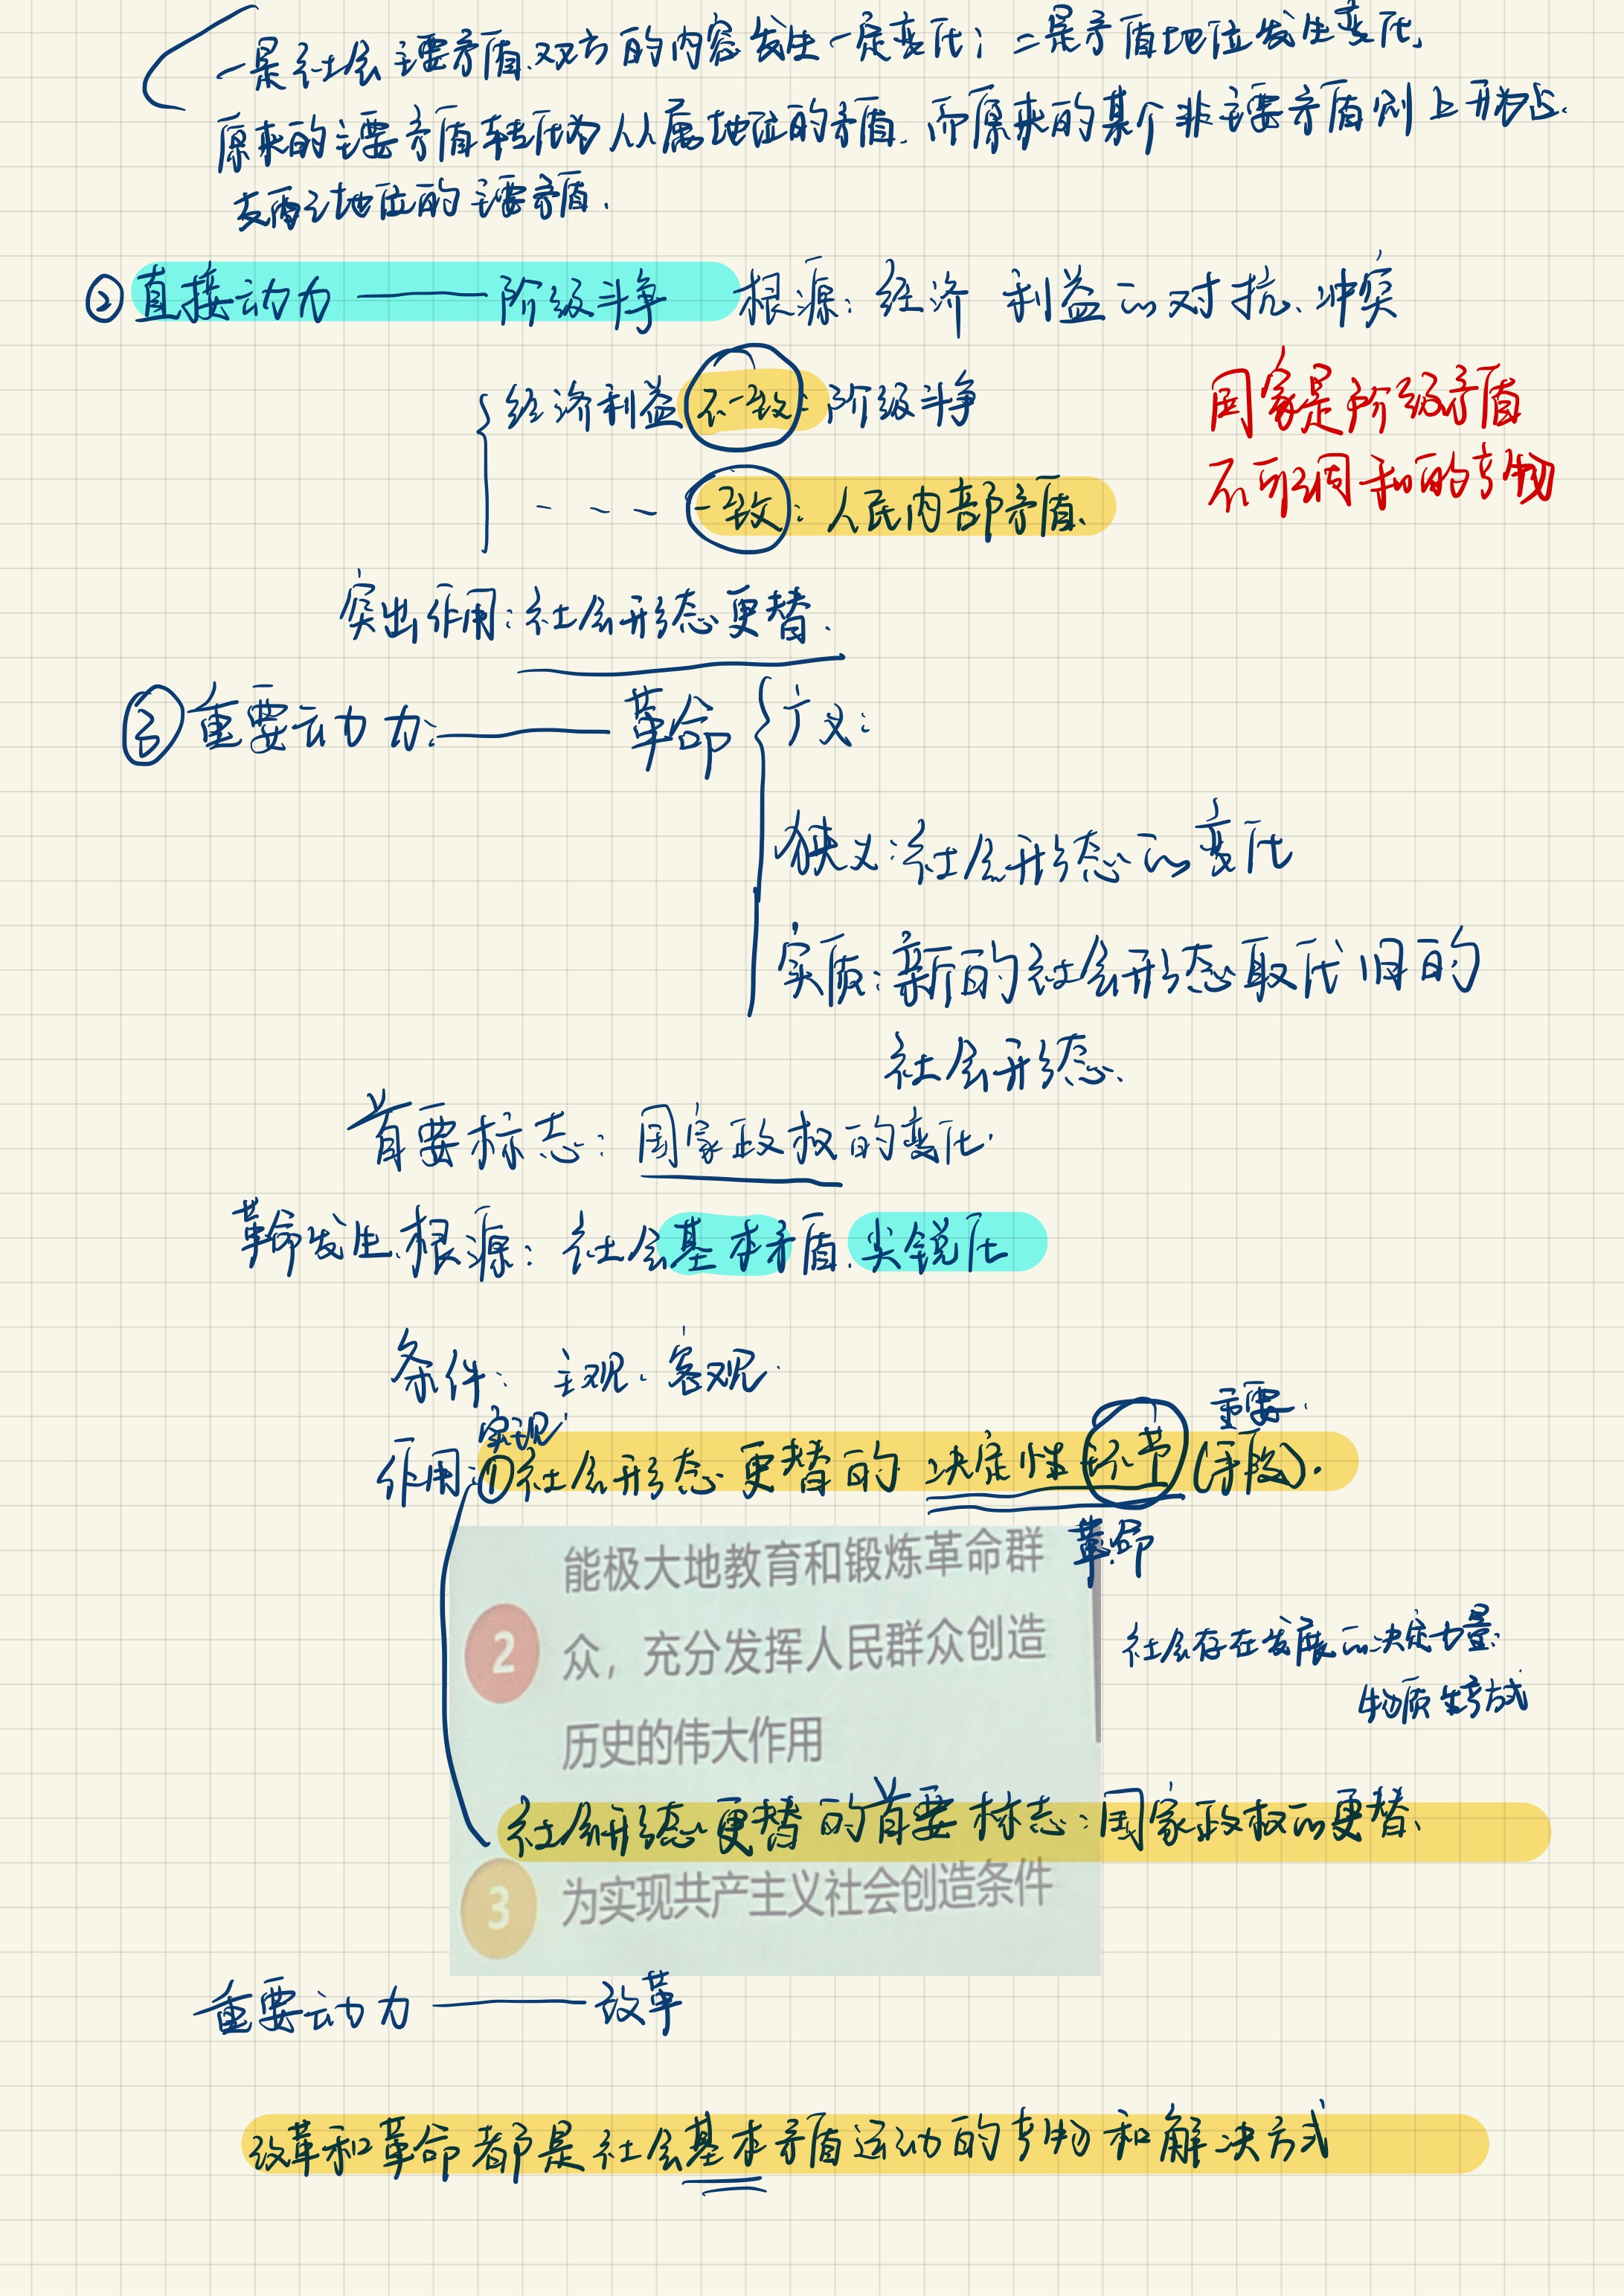 一是社会主要矛盾双方的内容发生一定变化；二是矛盾地位发生变化，
原来的主要矛盾转化为从属地位的矛盾，而原来的某个非主要矛盾则上升为占
支配地位的主要矛盾.
② 直接动力——阶级斗争 根源：经济利益的对抗、冲突
经济利益不一致：阶级斗争
- - - 一致：人民内部矛盾.
国家是阶级矛盾
不可调和的产物
突出作用：社会形态更替.
③ 重要动力：——革命 广义：
狭义：社会形态的变化
实质：新的社会形态取代旧的
社会形态.
首要标志：国家政权的变化.
革命发生根源：社会基本矛盾尖锐化
条件：主观、客观.
实现 重要.
作用：①社会形态更替的决定性环节(手段).
革命
能极大地教育和锻炼革命群
2 众，充分发挥人民群众创造
历史的伟大作用
社会存在发展的决定力量:
物质生产方式
社会形态更替的首要标志：国家政权的更替.
3 为实现共产主义社会创造条件
重要动力——改革
改革和革命都是社会基本矛盾运动的产物和解决方式